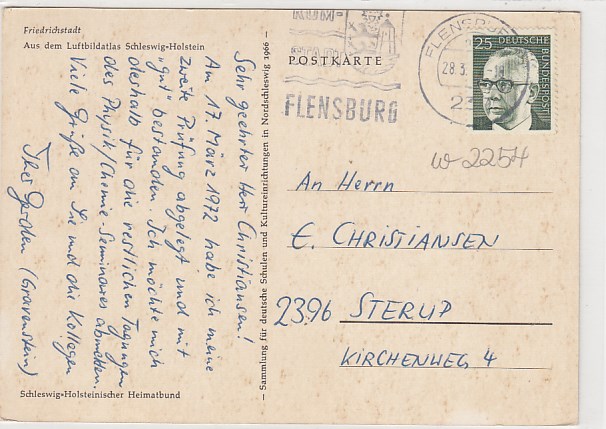 Friedrichstadt
Aus dem Luftbildatlas Schleswig-Holstein
Sehr geehrter Herr Christiansen!
Am 17. März 1972 habe ich meine
zweite Prüfung abgelegt und mit
"gut" bestanden. Ich möchte mich
deshalb für die restlichen Tagungen
des Physik/Chemie-Seminares abmelden.
Viele Grüße an Sie und die Kollegen
Ihr (Gravenstein)
Schleswig-Holsteinischer Heimatbund
— Sammlung für deutsche Schulen und Kultureinrichtungen in Nordschleswig 1966 —
POSTKARTE
FLENSBURG
FLENSBURG
28.3.
25 DEUTSCHE
BUNDESPOST
W 2254
An Herrn
E. CHRISTIANSEN
2396 STERUP
KIRCHENWEG 4